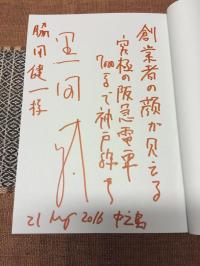 創業者の顔が見える
究極の阪急電車
で神戸線を
脇田健一様
21 Aug 2016 中之島